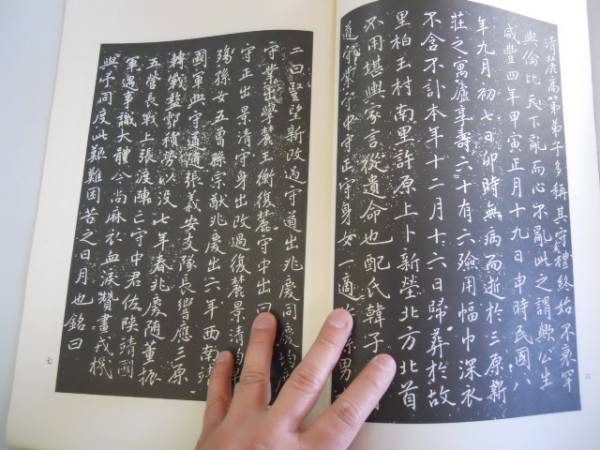 清麓高第弟子多稱其守禮終始不衰罕
與倫比天下亂而心不亂此之謂與公生
咸豐四年甲寅正月十九日申時民國八
年九月初七日卯時無病而逝於三原新
莊之寓廬享壽六十有六殮用幅巾深衣
不含不訃本年十二月十六日歸葬於故
里柏王村南里許原上卜新塋北方北首
不用堪輿家言從遺命也配氏韓子
道守業守中守正守身女一適 孫男
二曰堅望新改過守道出兆慶同慶
守業出學麓王衡復麓守中出
守正出景清守身出改過復麓景清
殤孫女五曾孫宗猷兆慶出六年西南靖
國軍興守道道張義安支隊長響應三原
轉戰盩鄠積勞以沒七年春兆慶隨董振
五營長戰上張渡陣亡守中君佐陝靖國
軍遇事識大體今尚麻衣血淚贊畫戎機
與予同度此艱難困苦之日月也銘曰
七